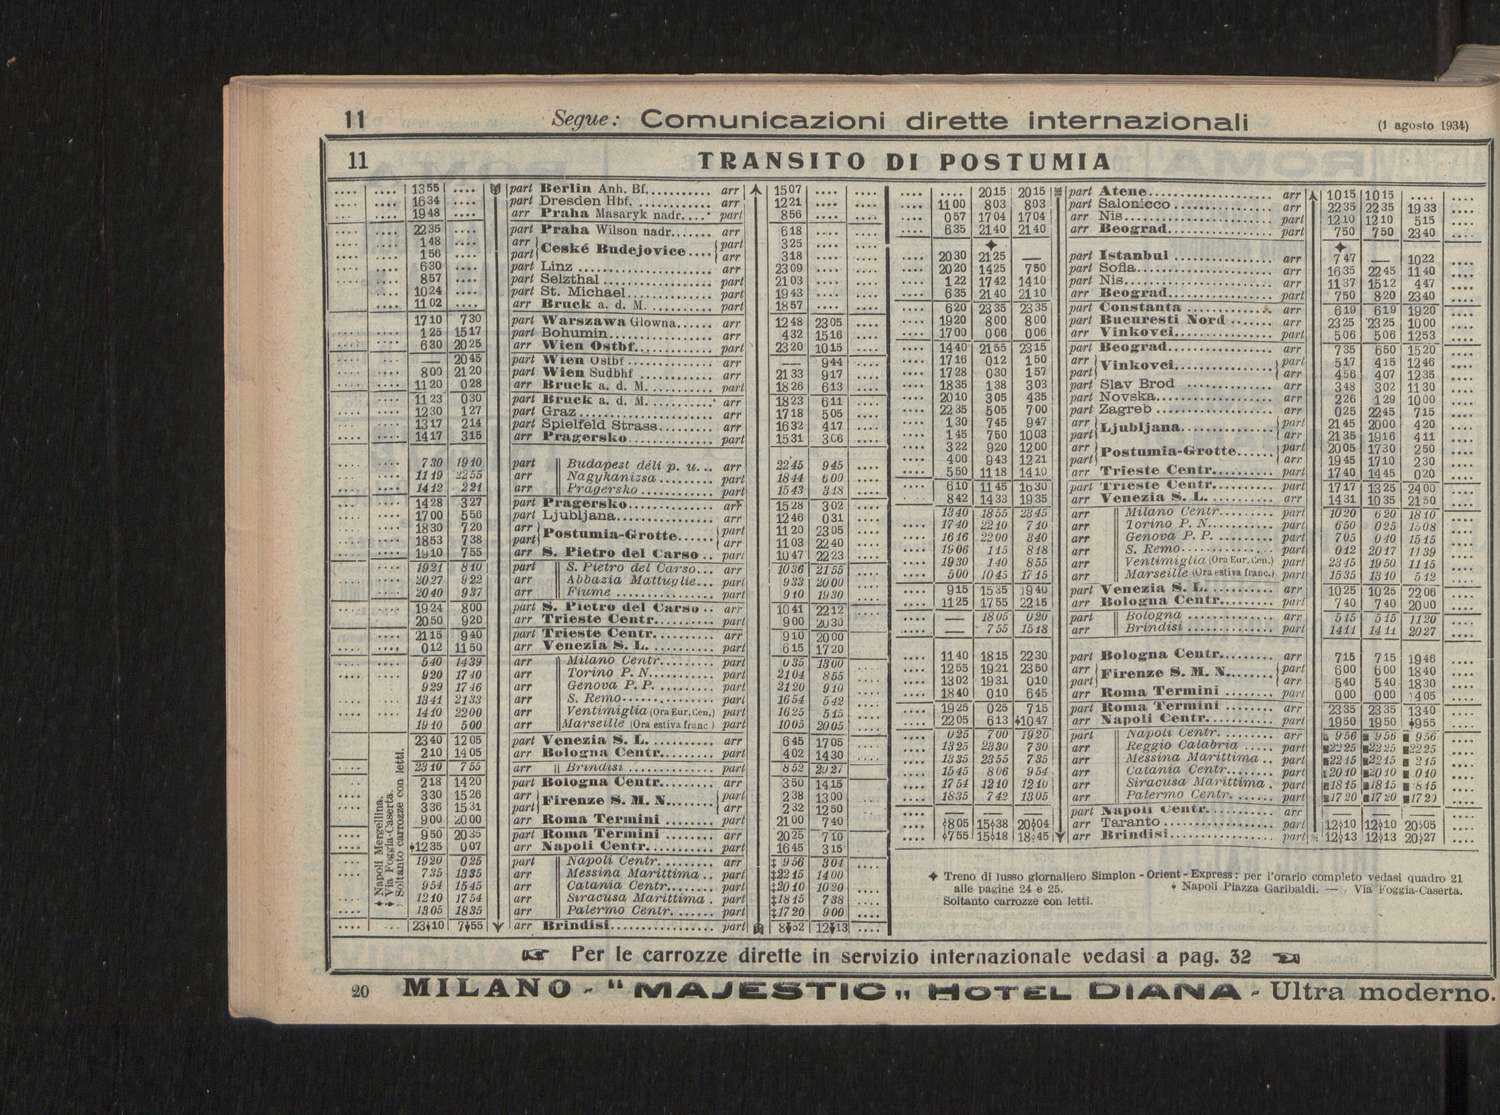 11 Segue: Comunicazioni dirette internazionali (1 agosto 1934)
11 TRANSITO DI POSTUMIA
.... .... 1355 .... part Berlin Anh. Bf. arr 1507 .... ....
.... .... 1634 .... part Dresden Hbf. arr 1221 .... ....
.... .... 1948 .... arr Praha Masaryk nadr. part 856 .... ....
.... .... 2235 .... part Praha Wilson nadr. arr 618 .... ....
.... .... 148 .... arr České Budejovice part 325 .... ....
.... .... 156 .... part arr 318 .... ....
.... .... 630 .... part Linz arr 2309 .... ....
.... .... 857 .... part Selzthal arr 2103 .... ....
.... .... 1024 .... part St. Michael arr 1943 .... ....
.... .... 1102 .... arr Bruck a. d. M. part 1857 .... ....
1710 730 part Warszawa Glowna arr 1248 2305 ....
.... .... 125 1517 part Bohumin arr 432 1516 ....
.... .... 630 2025 arr Wien Ostbf. part 2320 1015 ....
.... .... — 2045 part Wien Ostbf arr — 944 ....
.... .... 800 2120 part Wien Sudbhf arr 2133 917 ....
.... .... 1120 028 arr Bruck a. d. M. part 1826 613 ....
.... .... 1123 030 part Bruck a. d. M. arr 1823 611 ....
.... .... 1230 127 part Graz arr 1718 505 ....
.... .... 1317 214 part Spielfeld Strass arr 1632 417 ....
.... .... 1417 315 arr Pragersko part 1531 306 ....
.... .... 730 1910 part Budapest déli p. u. arr 2245 945 ....
.... .... 1119 2255 arr Nagykanizsa part 1844 600 ....
.... .... 1412 221 arr Pragersko part 1543 318 ....
.... .... 1428 327 part Pragersko arr 1528 302 ....
.... .... 1700 556 part Ljubljana arr 1246 031 ....
.... .... 1830 720 arr Postumia-Grotte part 1120 2305 ....
.... .... 1853 738 part arr 1103 2240 ....
.... .... 1910 755 arr S. Pietro del Carso part 1047 2223 ....
.... .... 1921 810 part S. Pietro del Carso arr 1036 2155 ....
.... .... 2027 922 arr Abbazia Mattuglie part 933 2000 ....
.... .... 2040 937 arr Fiume part 910 1930 ....
.... .... 1924 800 part S. Pietro del Carso arr 1041 2212 ....
.... .... 2050 920 arr Trieste Centr. part 900 2030 ....
.... .... 2115 940 part Trieste Centr. arr 910 2000 ....
.... .... 012 1150 arr Venezia S. L. part 615 1720 ....
.... .... 540 1439 arr Milano Centr. part 035 1300 ....
.... .... 920 1740 arr Torino P. N. part 2104 855 ....
.... .... 929 1746 arr Genova P. P. part 2120 910 ....
.... .... 1341 2133 arr S. Remo part 1654 542 ....
.... .... 1410 2200 arr Ventimiglia (Ora Eur. Cen.) part 1625 515 ....
.... .... 1940 500 arr Marseille (Ora estiva franc.) part 1005 2005 ....
2340 1205 part Venezia S. L. arr 645 1705 ....
210 1405 arr Bologna Centr. part 402 1430 ....
2310 755 arr Brindisi part 852 2027 ....
218 1420 part Bologna Centr. arr 350 1415 ....
330 1526 arr Firenze S. M. N. part 238 1300 ....
336 1531 part arr 232 1250 ....
900 2000 arr Roma Termini part 2100 740 ....
950 2035 part Roma Termini arr 2025 710 ....
1235 007 arr Napoli Centr. part 1645 315 ....
1920 025 part Napoli Centr. arr ‡ 956 304 ....
735 1335 arr Messina Marittima part ‡2215 1400 ....
954 1545 arr Catania Centr. part ‡2010 1020 ....
1210 1754 arr Siracusa Marittima part ‡1845 738 ....
1305 1835 arr Palermo Centr. part ‡1720 900 ....
23‡10 7‡55 arr Brindisi part 8‡52 12‡13 ....
Napoli Mergellina.
Via Foggia-Caserta.
Soltanto carrozze con letti.
.... .... 2015 2015 part Atene arr 1015 1015 .... ....
.... 1100 803 803 part Salonicco arr 2235 2235 1933 ....
.... 057 1704 1704 arr Nis part 1210 1210 515 ....
.... 635 2140 2140 arr Beograd part 750 750 2340 ....
.... 2030 2125 — part Istanbul arr 747 — 1022 ....
.... 2020 1425 750 part Sofia arr 1635 2245 1140 ....
.... 122 1742 1410 part Nis arr 1137 1512 447 ....
.... 635 2140 2110 arr Beograd part 750 820 2340 ....
.... 620 2335 2335 part Constanta arr 619 619 1920 ....
.... 1920 800 800 part Bucuresti Nord arr 2325 2325 1000 ....
.... 1700 006 006 arr Vinkovci part 506 506 1253 ....
.... 1440 2155 2315 part Beograd arr 735 650 1520 ....
.... 1716 012 150 arr Vinkovci part 517 415 1246 ....
.... 1728 030 157 part arr 456 407 1235 ....
.... 1835 138 303 part Slav Brod arr 348 302 1130 ....
.... 2010 305 435 part Novska arr 226 129 1000 ....
.... 2235 505 700 part Zagreb arr 025 2245 715 ....
.... 130 745 947 arr Ljubljana part 2145 2000 420 ....
.... 145 750 1003 part arr 2135 1916 411 ....
.... 322 920 1200 arr Postumia-Grotte part 2005 1730 250 ....
.... 400 943 1221 part arr 1945 1710 230 ....
.... 550 1118 1410 arr Trieste Centr. part 1740 1445 020 ....
.... 610 1145 1630 part Trieste Centr. arr 1717 1325 2400 ....
.... 842 1433 1935 arr Venezia S. L. part 1431 1035 2150 ....
.... 1340 1855 2345 arr Milano Centr. part 1020 620 1810 ....
.... 1740 2210 740 arr Torino P. N. part 650 025 1508 ....
.... 1616 2200 840 arr Genova P. P. part 705 040 1515 ....
.... 1906 115 818 arr S. Remo part 012 2017 1139 ....
.... 1930 140 855 arr Ventimiglia (Ora Eur. Cen.) part 2345 1950 1115 ....
.... 500 1045 1715 arr Marseille (Ora estiva franc.) part 1535 1310 512 ....
.... 915 1535 1940 part Venezia S. L. arr 1025 1025 2206 ....
.... 1125 1755 2215 arr Bologna Centr. part 740 740 2000 ....
.... — 1805 020 part Bologna arr 515 515 1120 ....
.... — 755 1518 arr Brindisi part 1411 1411 2027 ....
.... 1140 1815 2230 part Bologna Centr. arr 715 715 1946 ....
.... 1255 1921 2350 arr Firenze S. M. N. part 600 600 1840 ....
.... 1302 1931 010 part arr 540 540 1830 ....
.... 1840 010 645 arr Roma Termini part 000 000 1405 ....
.... 1925 025 715 part Roma Termini arr 2335 2335 1340 ....
.... 2205 613 1047 arr Napoli Centr. part 1950 1950 955 ....
.... 025 700 1920 part Napoli Centr. arr 956 956 956 ....
.... 1325 2330 730 arr Reggio Calabria part 2225 2225 2225 ....
.... 1335 2355 735 arr Messina Marittima part 2215 2215 215 ....
.... 1545 806 954 arr Catania Centr. part 2010 2010 010 ....
.... 1754 1210 1210 arr Siracusa Marittima part 1815 1815 815 ....
.... 1835 742 1305 arr Palermo Centr. part 1720 1720 1720 ....
.... — — — part Napoli Centr. arr — — — ....
.... ‡805 15‡38 20‡04 arr Taranto part 12‡10 12‡10 20‡05 ....
.... ‡755 15‡18 18‡45 arr Brindisi part 12‡13 12‡13 20‡27 ....
✦ Treno di lusso giornaliero Simplon-Orient-Express: per l'orario completo vedasi quadro 21
alle pagine 24 e 25. Napoli Piazza Garibaldi. — Via Foggia-Caserta.
Soltanto carrozze con letti.
☞ Per le carrozze dirette in servizio internazionale vedasi a pag. 32 ☜
20 MILANO - "MAJESTIC„ HOTEL DIANA - Ultra moderno.